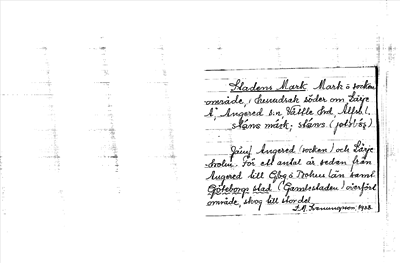 Stadens Mark Mark ö socken
område, i huvudsak söder om Lärje
å, Angered s:n, Vättle hd, Älfsb l.
stáns márk; stáns (
Jämf Angered (socken) och Lärje
holm. För ett antal år sedan från
Angered till Gbg o Bohus län saml
Göteborgs stad (Gamlestaden) överfört
område, skog till stor del.
1922